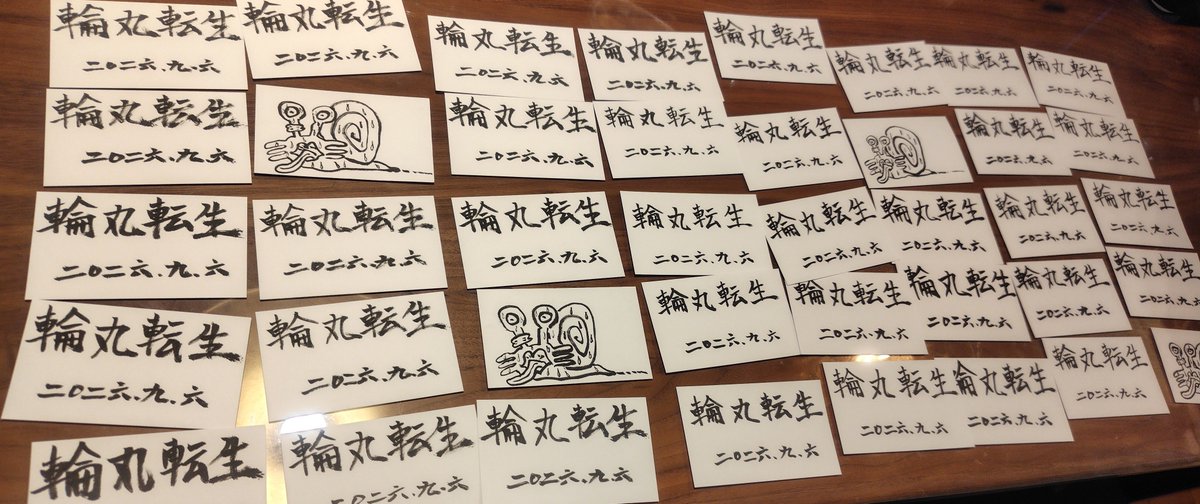 輪丸転生
二〇二六、九、六
輪丸転生
二〇二六、九、六
輪丸転生
二〇二六、九、六
輪丸転生
二〇二六、九、六
輪丸転生
二〇二六、九、六
輪丸転生
二〇二六、九、六
輪丸転生
二〇二六、九、六
輪丸転生
二〇二六、九、六
輪丸転生
二〇二六、九、六
輪丸転生
二〇二六、九、六
輪丸転生
二〇二六、九、六
輪丸転生
二〇二六、九、六
輪丸転生
二〇二六、九、六
輪丸転生
二〇二六、九、六
輪丸転生
二〇二六、九、六
輪丸転生
二〇二六、九、六
輪丸転生
二〇二六、九、六
輪丸転生
二〇二六、九、六
輪丸転生
二〇二六、九、六
輪丸転生
二〇二六、九、六
輪丸転生
二〇二六、九、六
輪丸転生
二〇二六、九、六
輪丸転生
二〇二六、九、六
輪丸転生
二〇二六、九、六
輪丸転生
二〇二六、九、六
輪丸転生
二〇二六、九、六
輪丸転生
二〇二六、九、六
輪丸転生
二〇二六、九、六
輪丸転生
二〇二六、九、六
輪丸転生
輪丸転生
二〇二六、九、六
輪丸転生
二〇二六、九、六
輪丸転生
二〇二六、九、六
輪丸転生
二〇二六、九、六
輪丸転生
二〇二六、九、六
輪丸転生
二〇二六、九、六